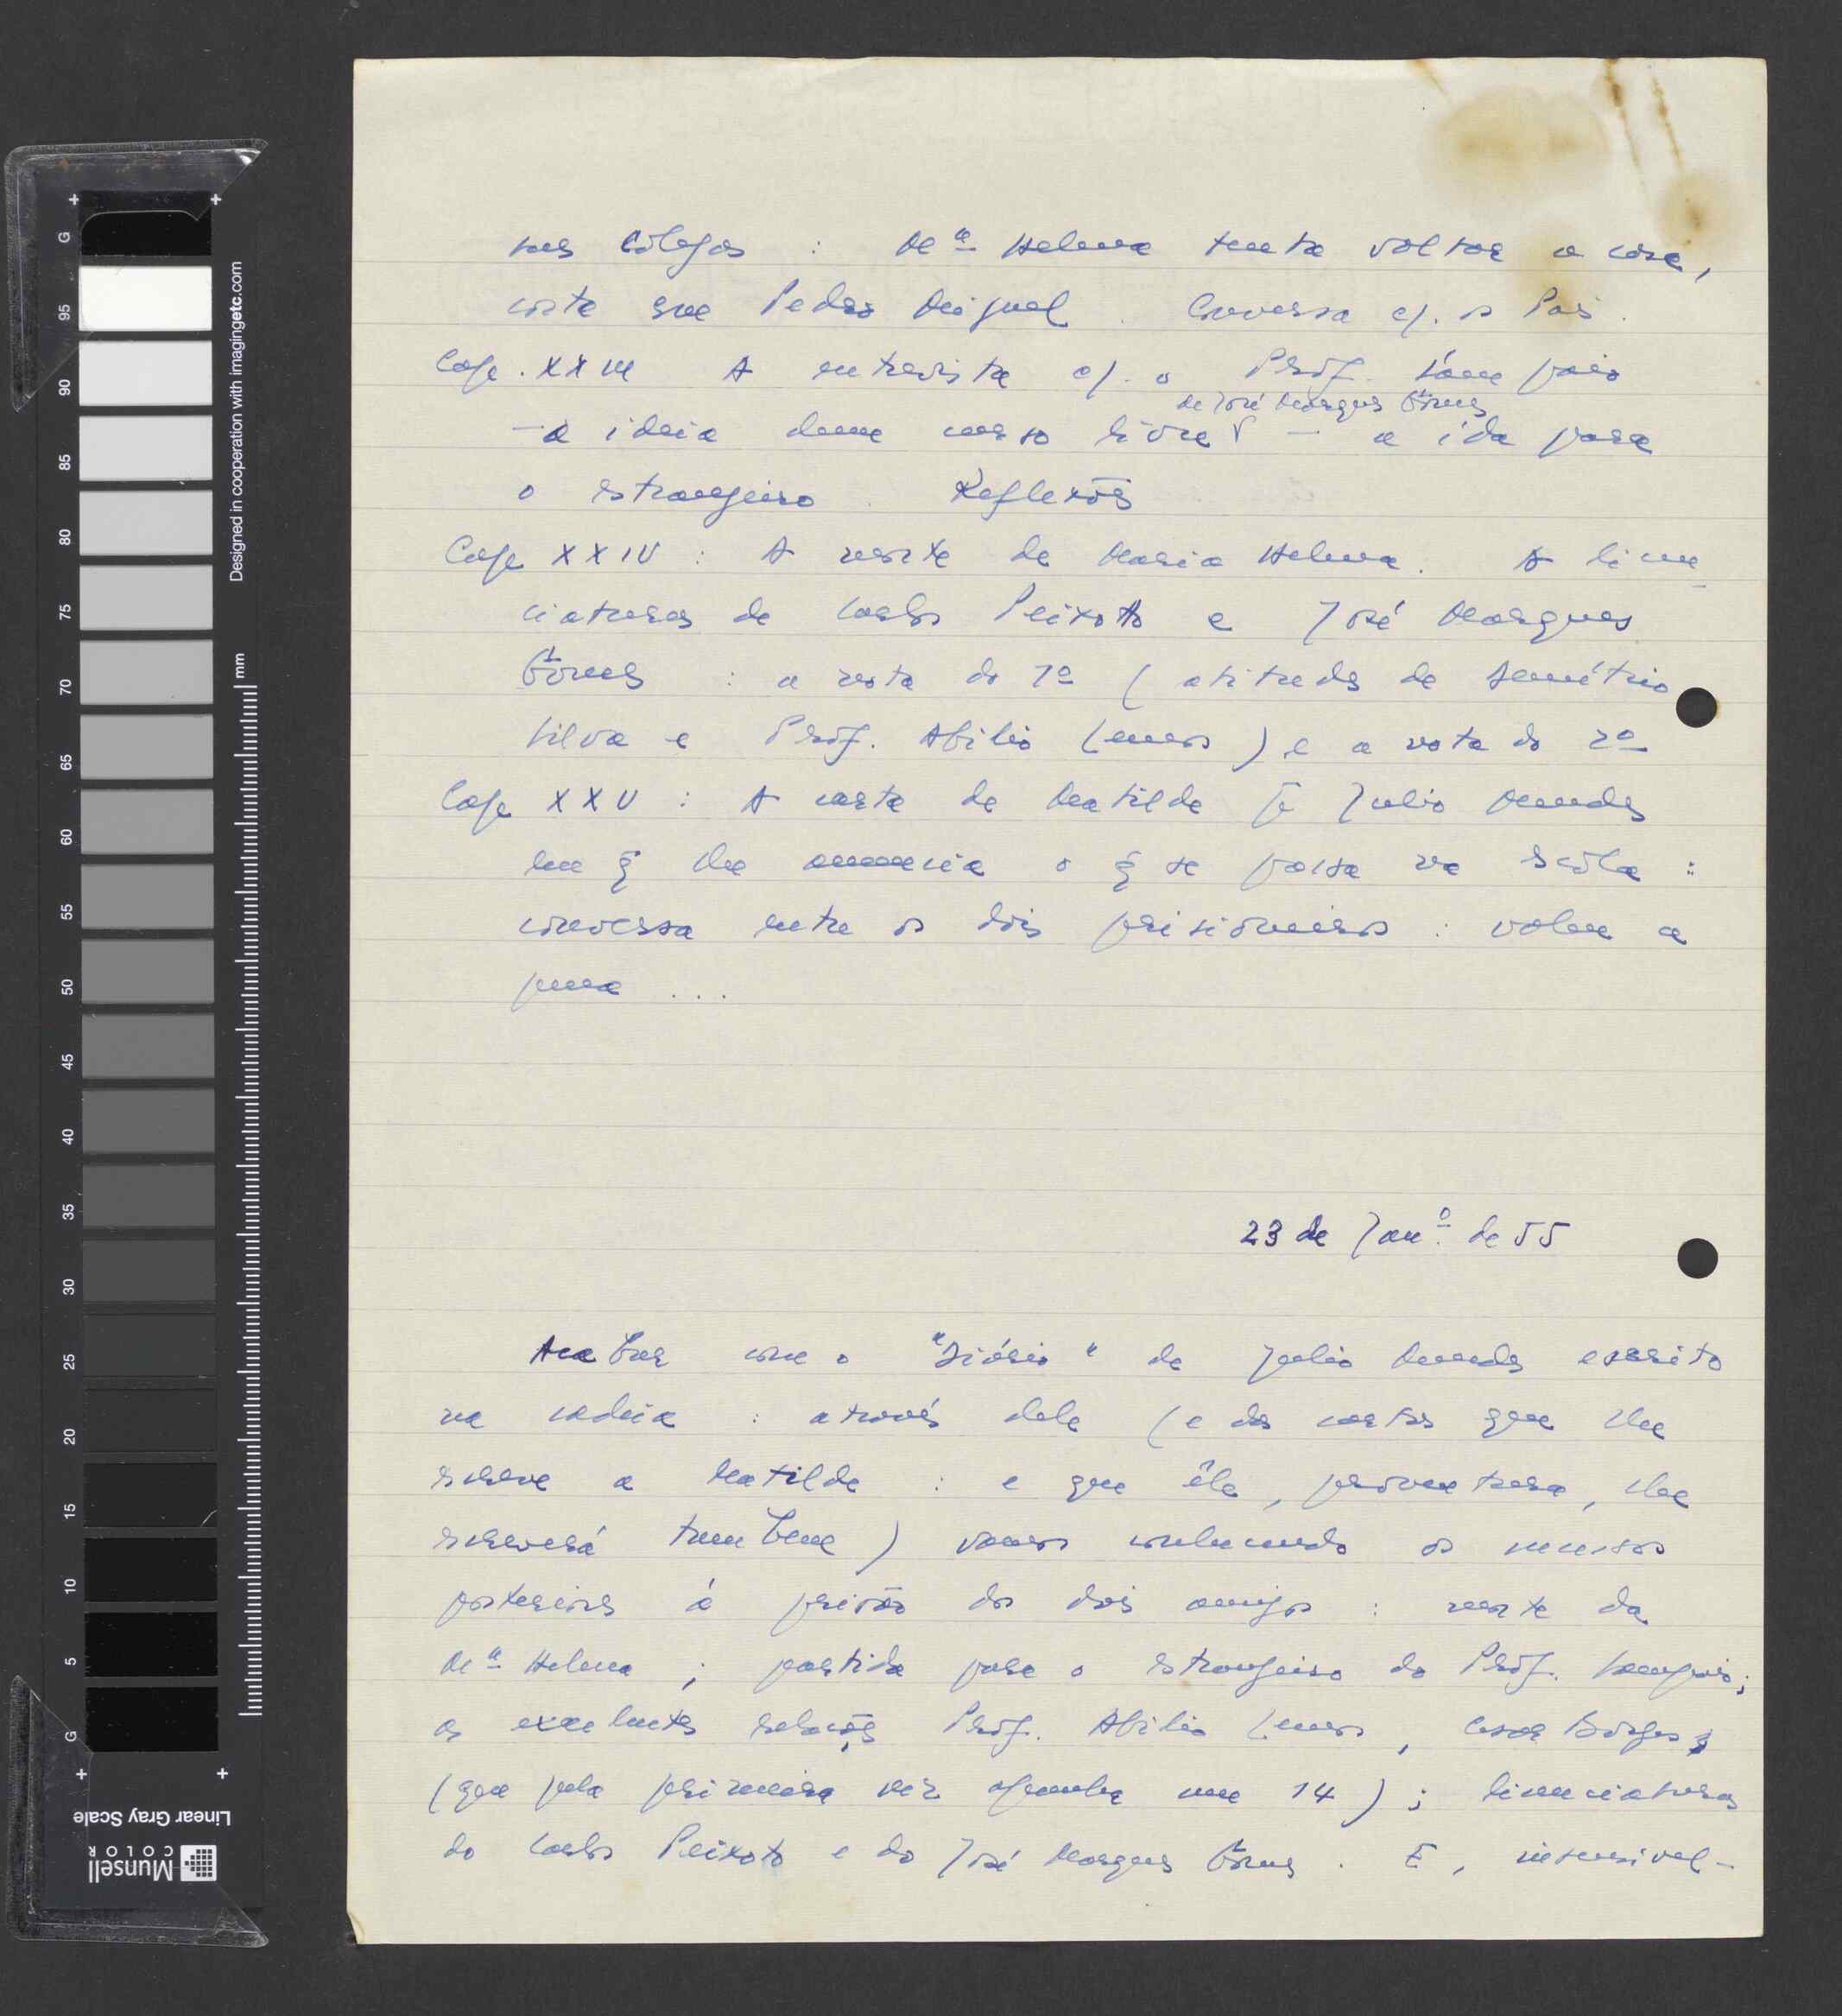 nos Cólegas : Mª Helena tenta voltar a casa,
corta com Pedro Miguel. Conversa c/. o Pai.
Cap. XXIII A entrevista c/. o Prof. Sampaio
de José Marques Gomes
– a ideia dum curso livre – a ida para
o estrangeiro. Reflexões
Cap XXIV : A morte de Maria Helena. A licen-
ciaturas de Carlos Peixoto e José Marques
Gomes : a nota do 1º (atitudes de Demétrio
Silva e Prof. Abílio Lemos) e a nota do 2º
Cap XXV : A carta de Matilde p. Julio Mendes
em q̃ lhe anuncia o q̃ se passa na escola :
conversa entre os dois prisioneiros : valeu a
pena ...
23 de Janº. de 55
Acabar com o "Diário" de Julio Mendes escrito
na cadeia : através dele (e das cartas que lhe
escreve a Matilde : e que êle, porventura, lhe
escreverá tambem) vamos conhecendo os sucessos
posteriores á prisão dos dois amigos : morte da
Mª Helena ; partida para o estrangeiro do Prof. Sampaio;
as excelentes relações Prof. Abílio Lemos, Cesar Borges,
(que pela primeira vez apanha um 14) ; licenciaturas
do Carlos Peixoto e do José Marques Gomes. E, insensivel-
Designed in cooperation with imagingetc.com
mm
G
95
90
85
80
75
70
65
60
55
50
45
40
35
30
25
20
15
10
5
G
Linear Gray Scale
Munsell
COLOR